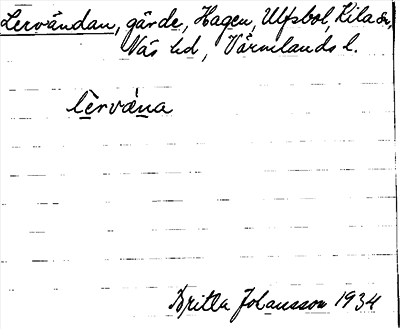 Lervändan, gärde, Hagen, Ulfsbol, Kila sn,
Näs hd, Värmlands l.
lèrvǽna
Britta Johansson 1934